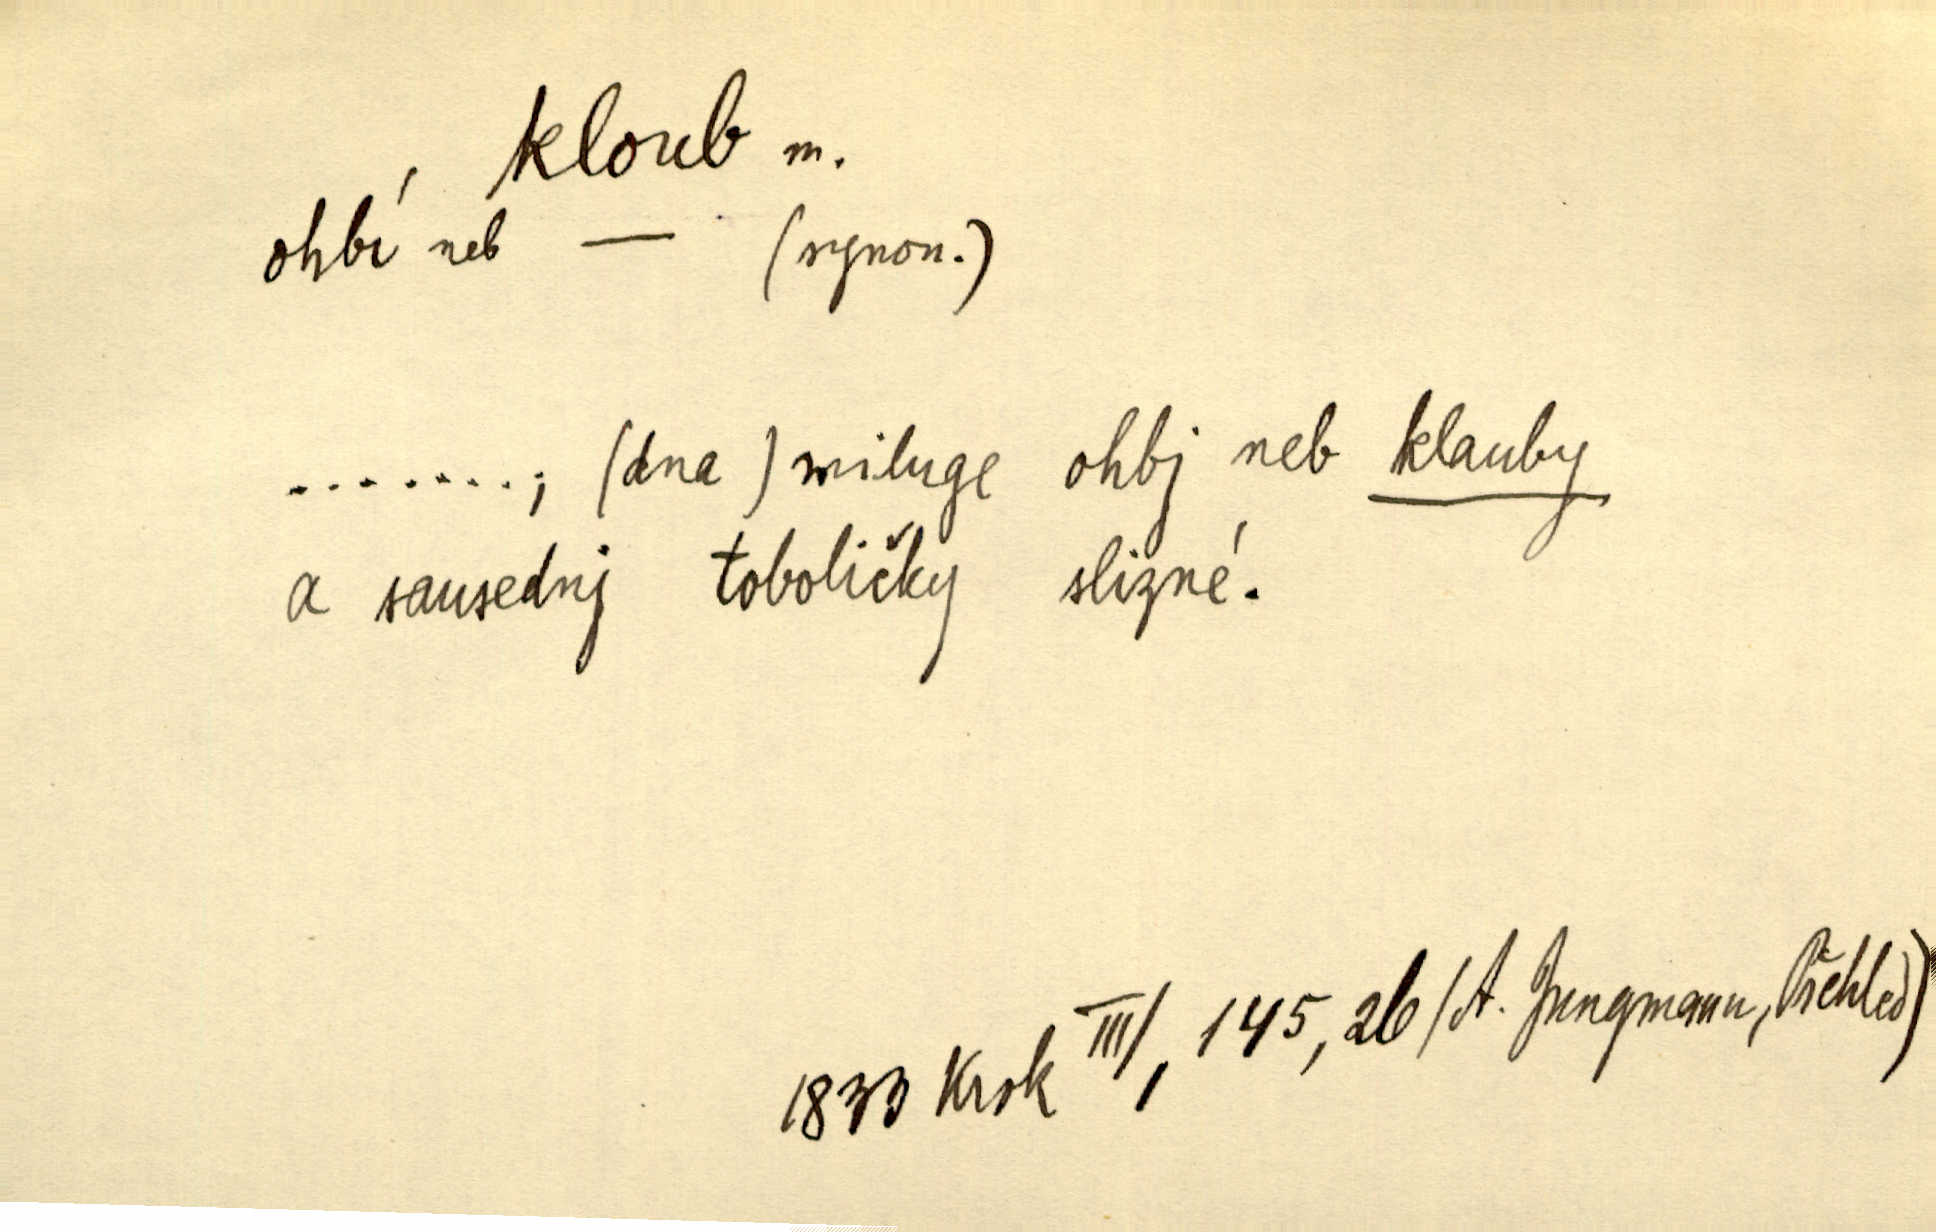 kloub m.
ohbí neb — (synon.)
........; (dna) miluge ohbj neb klauby
a sausednj toboličky slizné.
1833 Krok III/, 145, 26 (A. Jungmann, Přehled)